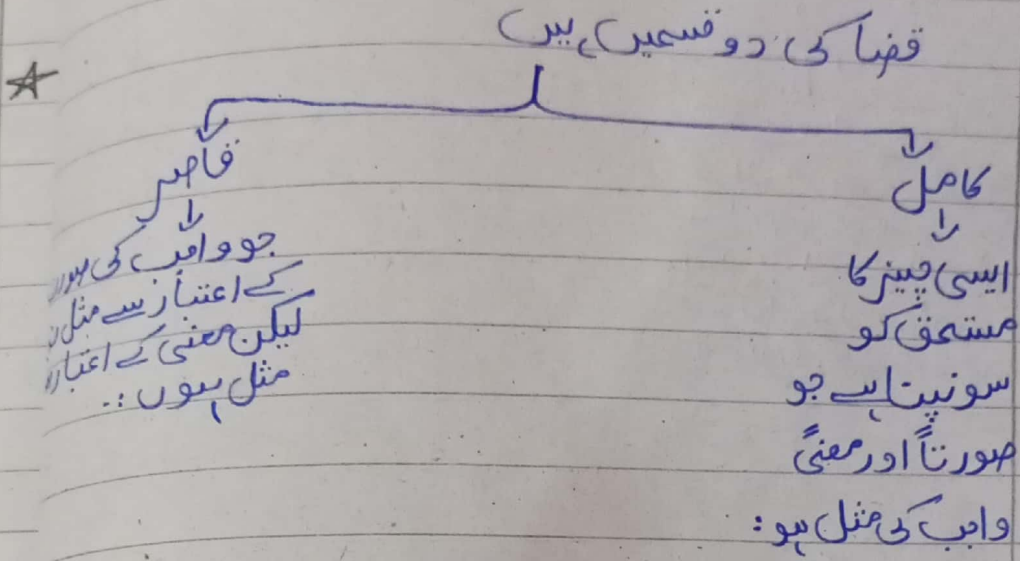 قضا کی دو قسمیں ہیں
کامل
ایسی چیز کا
مستحق کو
سونپنا ہے جو
صورتاً اور معنیً
واجب کی مثل ہو:
قاصر
جو واجب کی
کے اعتبار سے مثل
لیکن معنی کے اعتبار
مثل ہوں :.